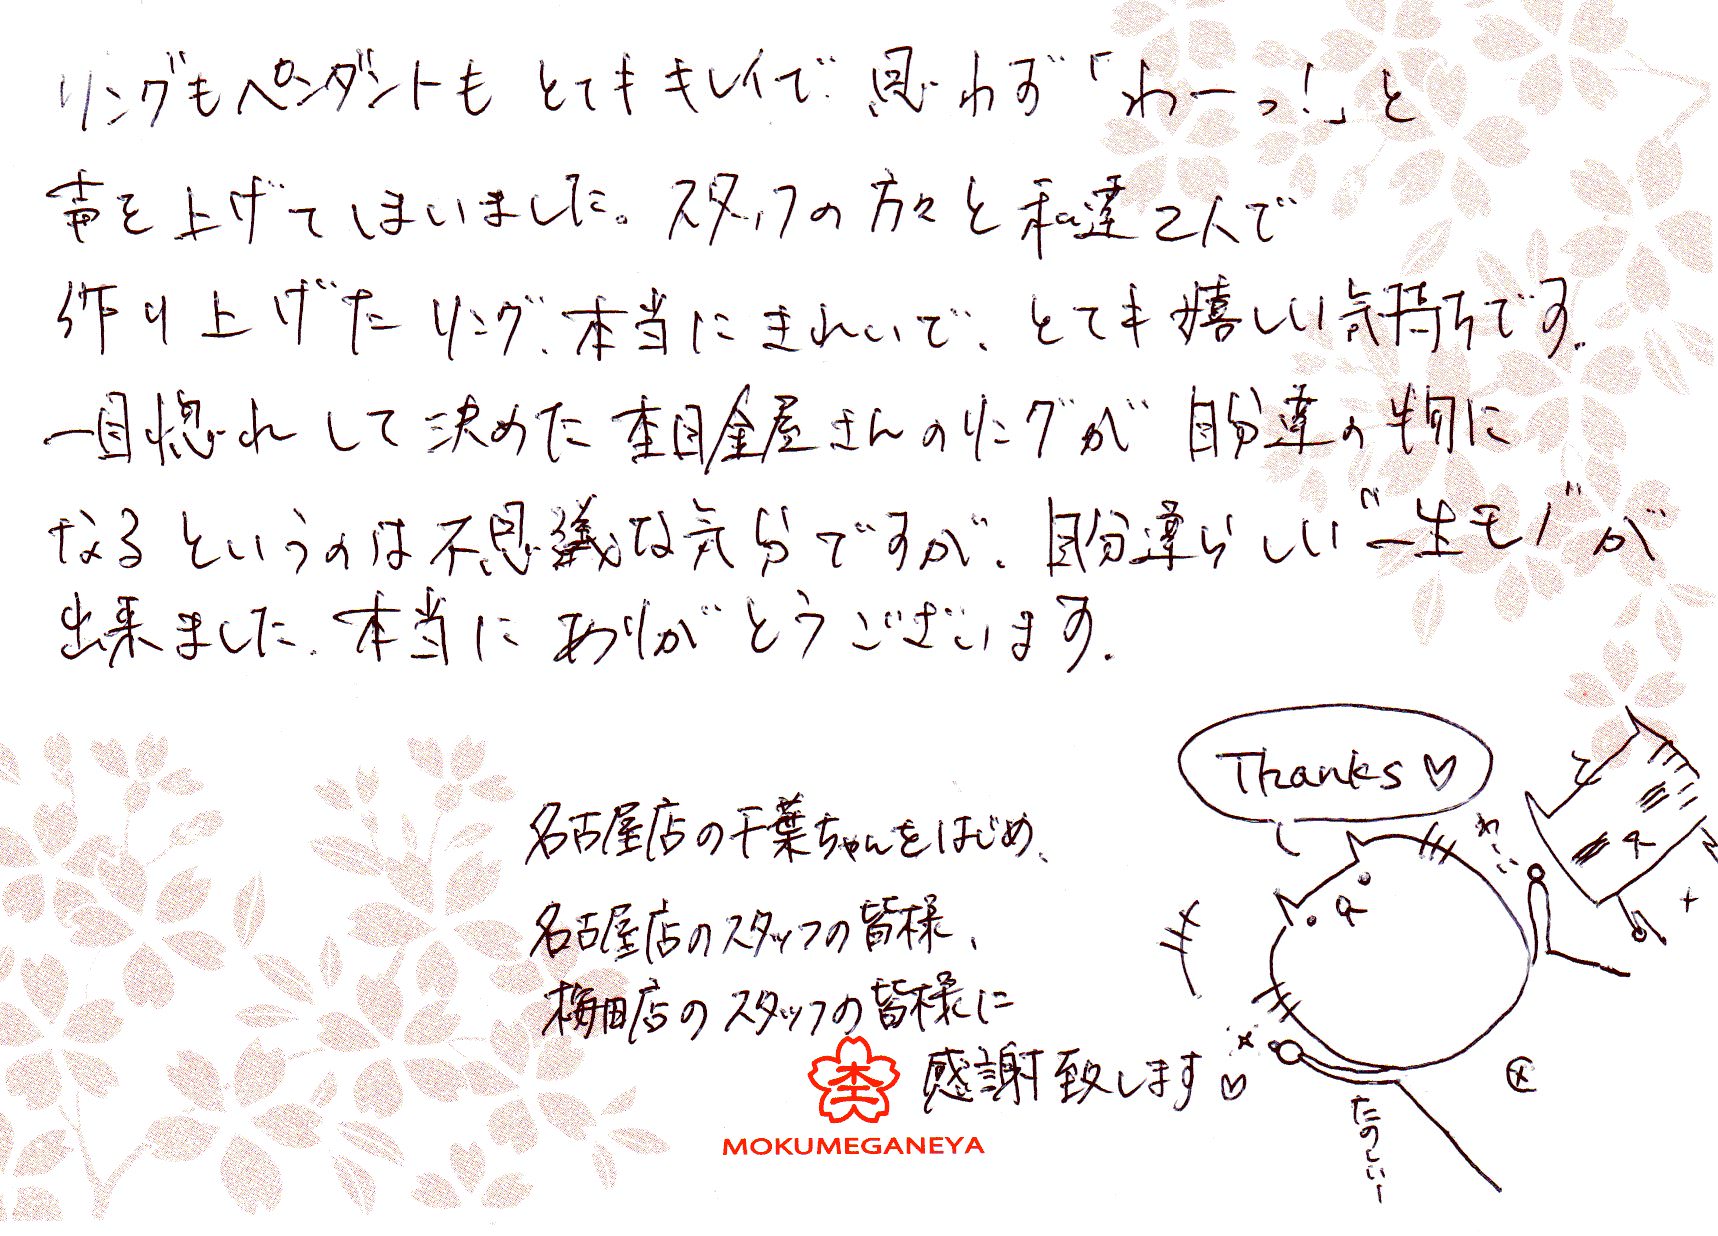 リングもペンダントもとてもキレイで思わず「わーっ!」と
声を上げてしまいました。スタッフの方々と私達2人で
作り上げたリング、本当にきれいで、とても嬉しい気持ちです。
一目惚れして決めた杢目金屋さんのリングが自分達の物に
なるというのは不思議な気分ですが、自分達らしい"一生モノ"が
出来ました。本当にありがとうございます。
Thanks♡
わーい
名古屋店の千葉ちゃんをはじめ、
名古屋店のスタッフの皆様、
梅田店のスタッフの皆様に
感謝致します♡
杢
MOKUMEGANEYA
たのしいー